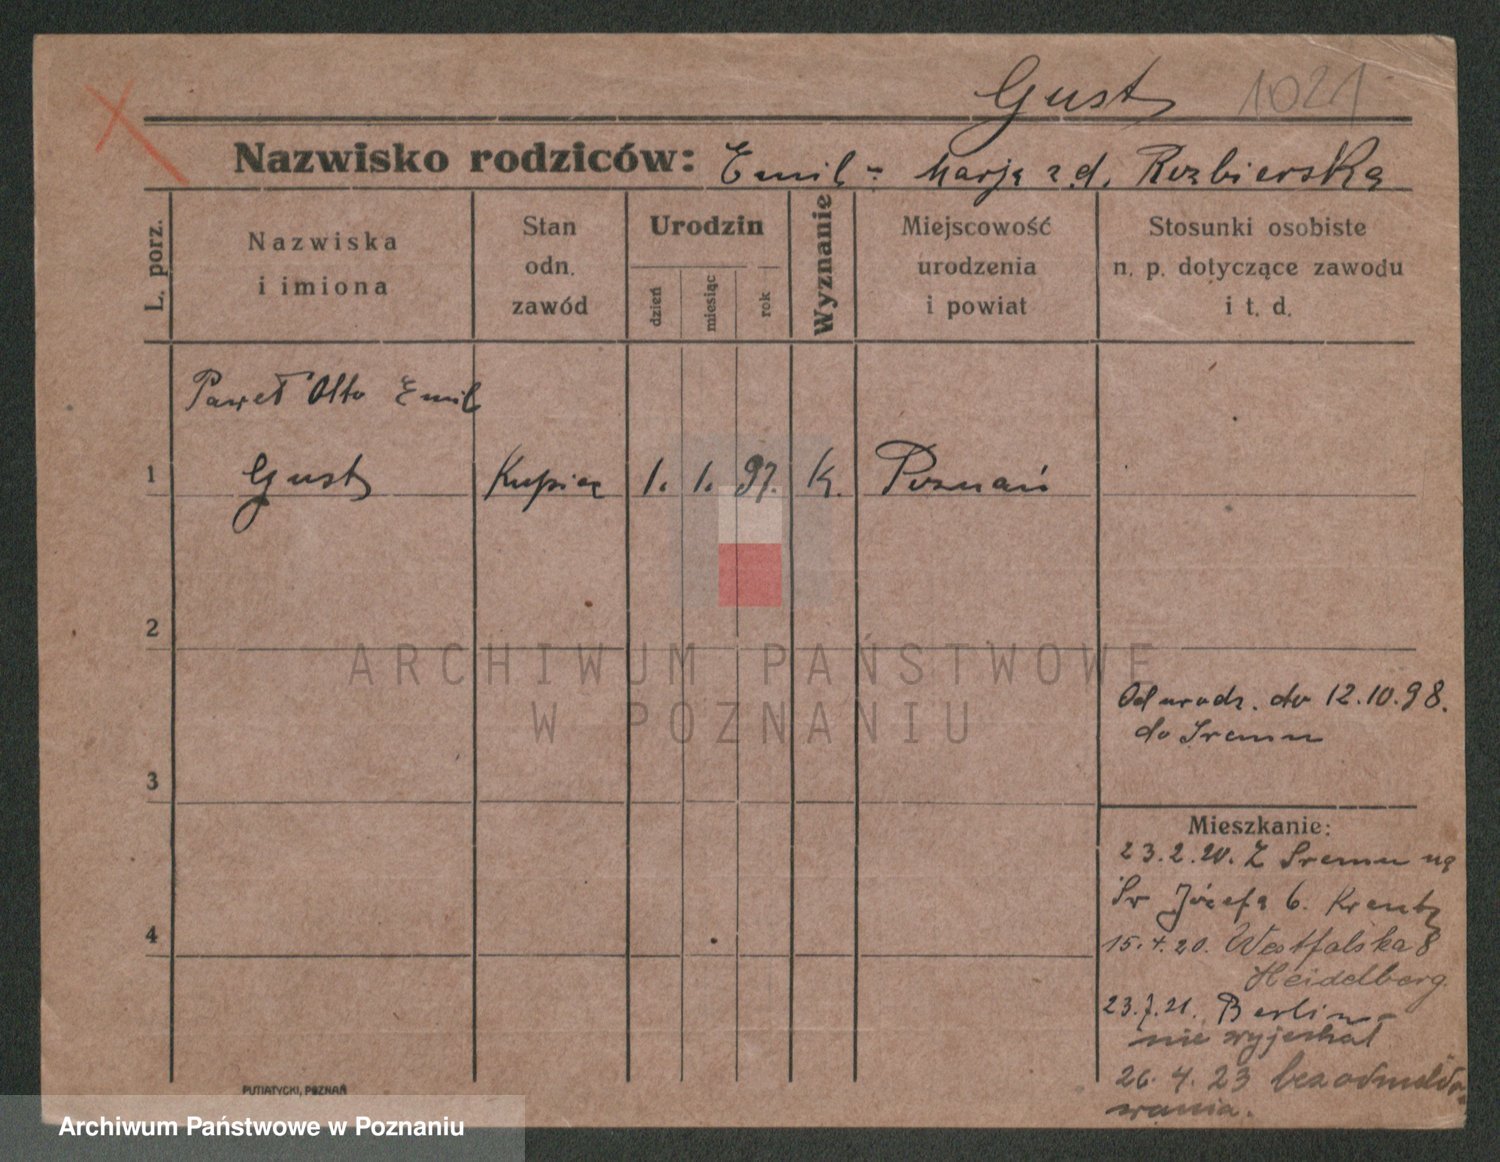 Gust 1021
Nazwisko rodziców: Emil - Marja z d. Rozbierska
L. porz.
Nazwiska
i imiona
Stan
odn.
zawód
Urodzin
dzień
miesiąc
rok
Wyznanie
Miejscowość
urodzenia
i powiat
Stosunki osobiste
n. p. dotyczące zawodu
i t. d.
Paweł Otto Emil
1 Gust Kupiec 1. 1. 97. K. Poznań
2
ARCHIWUM PAŃSTWOWE
W POZNANIU
Od urodz. do 12.10.98.
do Sremu
3
Mieszkanie:
23.2.20. Z Sremu na
Św Józefa 6.
4
15.4.20. Westfalska 8
Heidelberg
23.7.21. Berlin -
nie wyjechał
26. 4. 23 bez odmeldo-
wania.
PUTIATYCKI, POZNAŃ
Archiwum Państwowe w Poznaniu